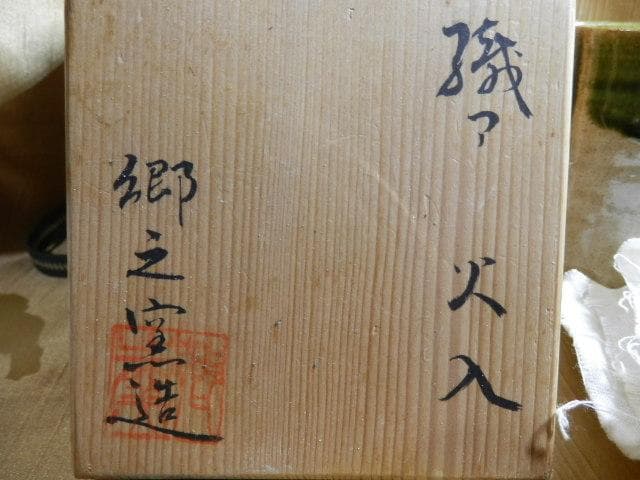 織ア 火入
郷之窯造